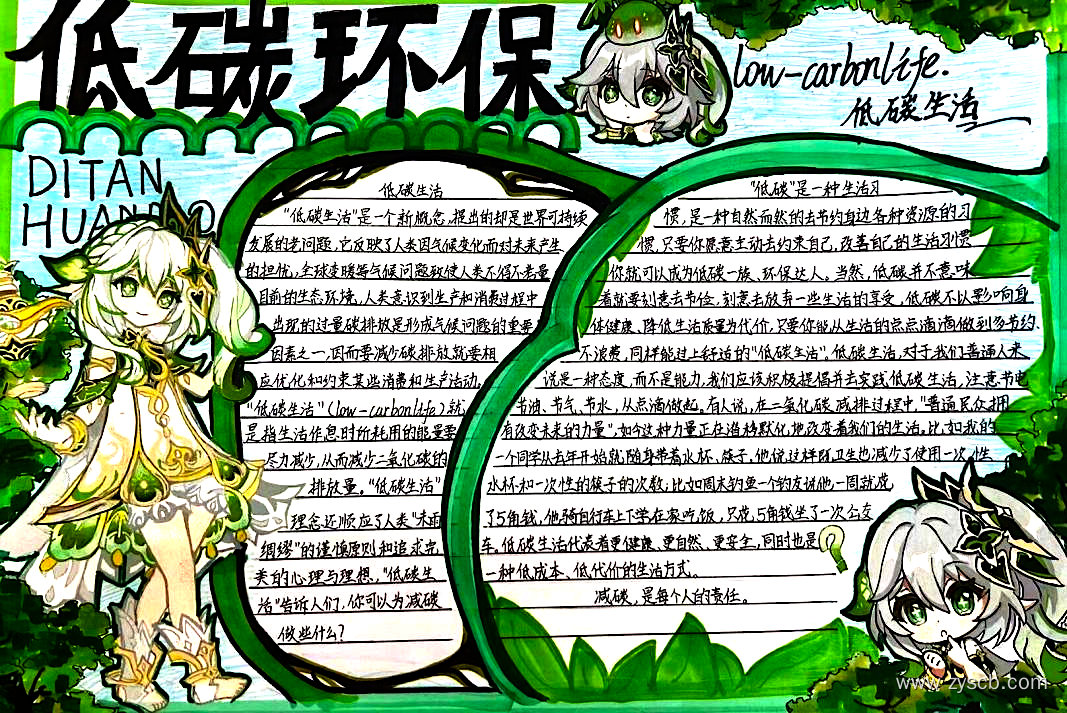 低碳环保
low-carbonlife.
低碳生活
DITAN
HUANBAO
低碳生活
"低碳生活"是一个新概念,提出的却是世界可持续
发展的老问题,它反映了人类因气候变化而对未来产生
的担忧,全球变暖等气候问题致使人类不得不考量
目前的生态环境,人类意识到生产和消费过程中
出现的过量碳排放是形成气候问题的重要
因素之一,因而要减少碳排放就要相
应优化和约束某些消费和生产活动。
"低碳生活"(low-carbonlife)就
是指生活作息时所耗用的能量要
尽力减少,从而减少二氧化碳的
排放量。"低碳生活"
理念还顺应了人类"未雨
绸缪"的谨慎原则和追求完
美的心理与理想,"低碳生
活"告诉人们,你可以为减碳
做些什么?
"低碳"是一种生活习
惯,是一种自然而然的去节约身边各种资源的习
惯,只要你愿意主动去约束自己,改善自己的生活习惯
你就可以成为低碳一族、环保达人,当然,低碳并不意味
着就要刻意去节俭,刻意去放弃一些生活的享受,低碳不以影响身
体健康、降低生活质量为代价,只要你能从生活的点点滴滴做到多节约、
不浪费,同样能过上舒适的"低碳生活"。低碳生活,对于我们普通人来
说是一种态度,而不是能力,我们应该积极提倡并去实践低碳生活,注意节电
节油、节气、节水,从点滴做起,有人说,在二氧化碳减排过程中,"普通民众拥
有改变未来的力量",如今这种力量正在潜移默化地改变着我们的生活。比如我的
一个同学从去年开始就随身带着水杯、筷子,他说,这样既卫生也减少了使用一次性
水杯和一次性的筷子的次数;比如周末钓鱼一个钓友说他一周就花
了5角钱,他骑自行车上下学在家吃饭,只花5角钱坐了一次公交
车。低碳生活代表着更健康、更自然、更安全,同时也是
一种低成本、低代价的生活方式。
减碳,是每个人的责任。
?
www.zyscb.com